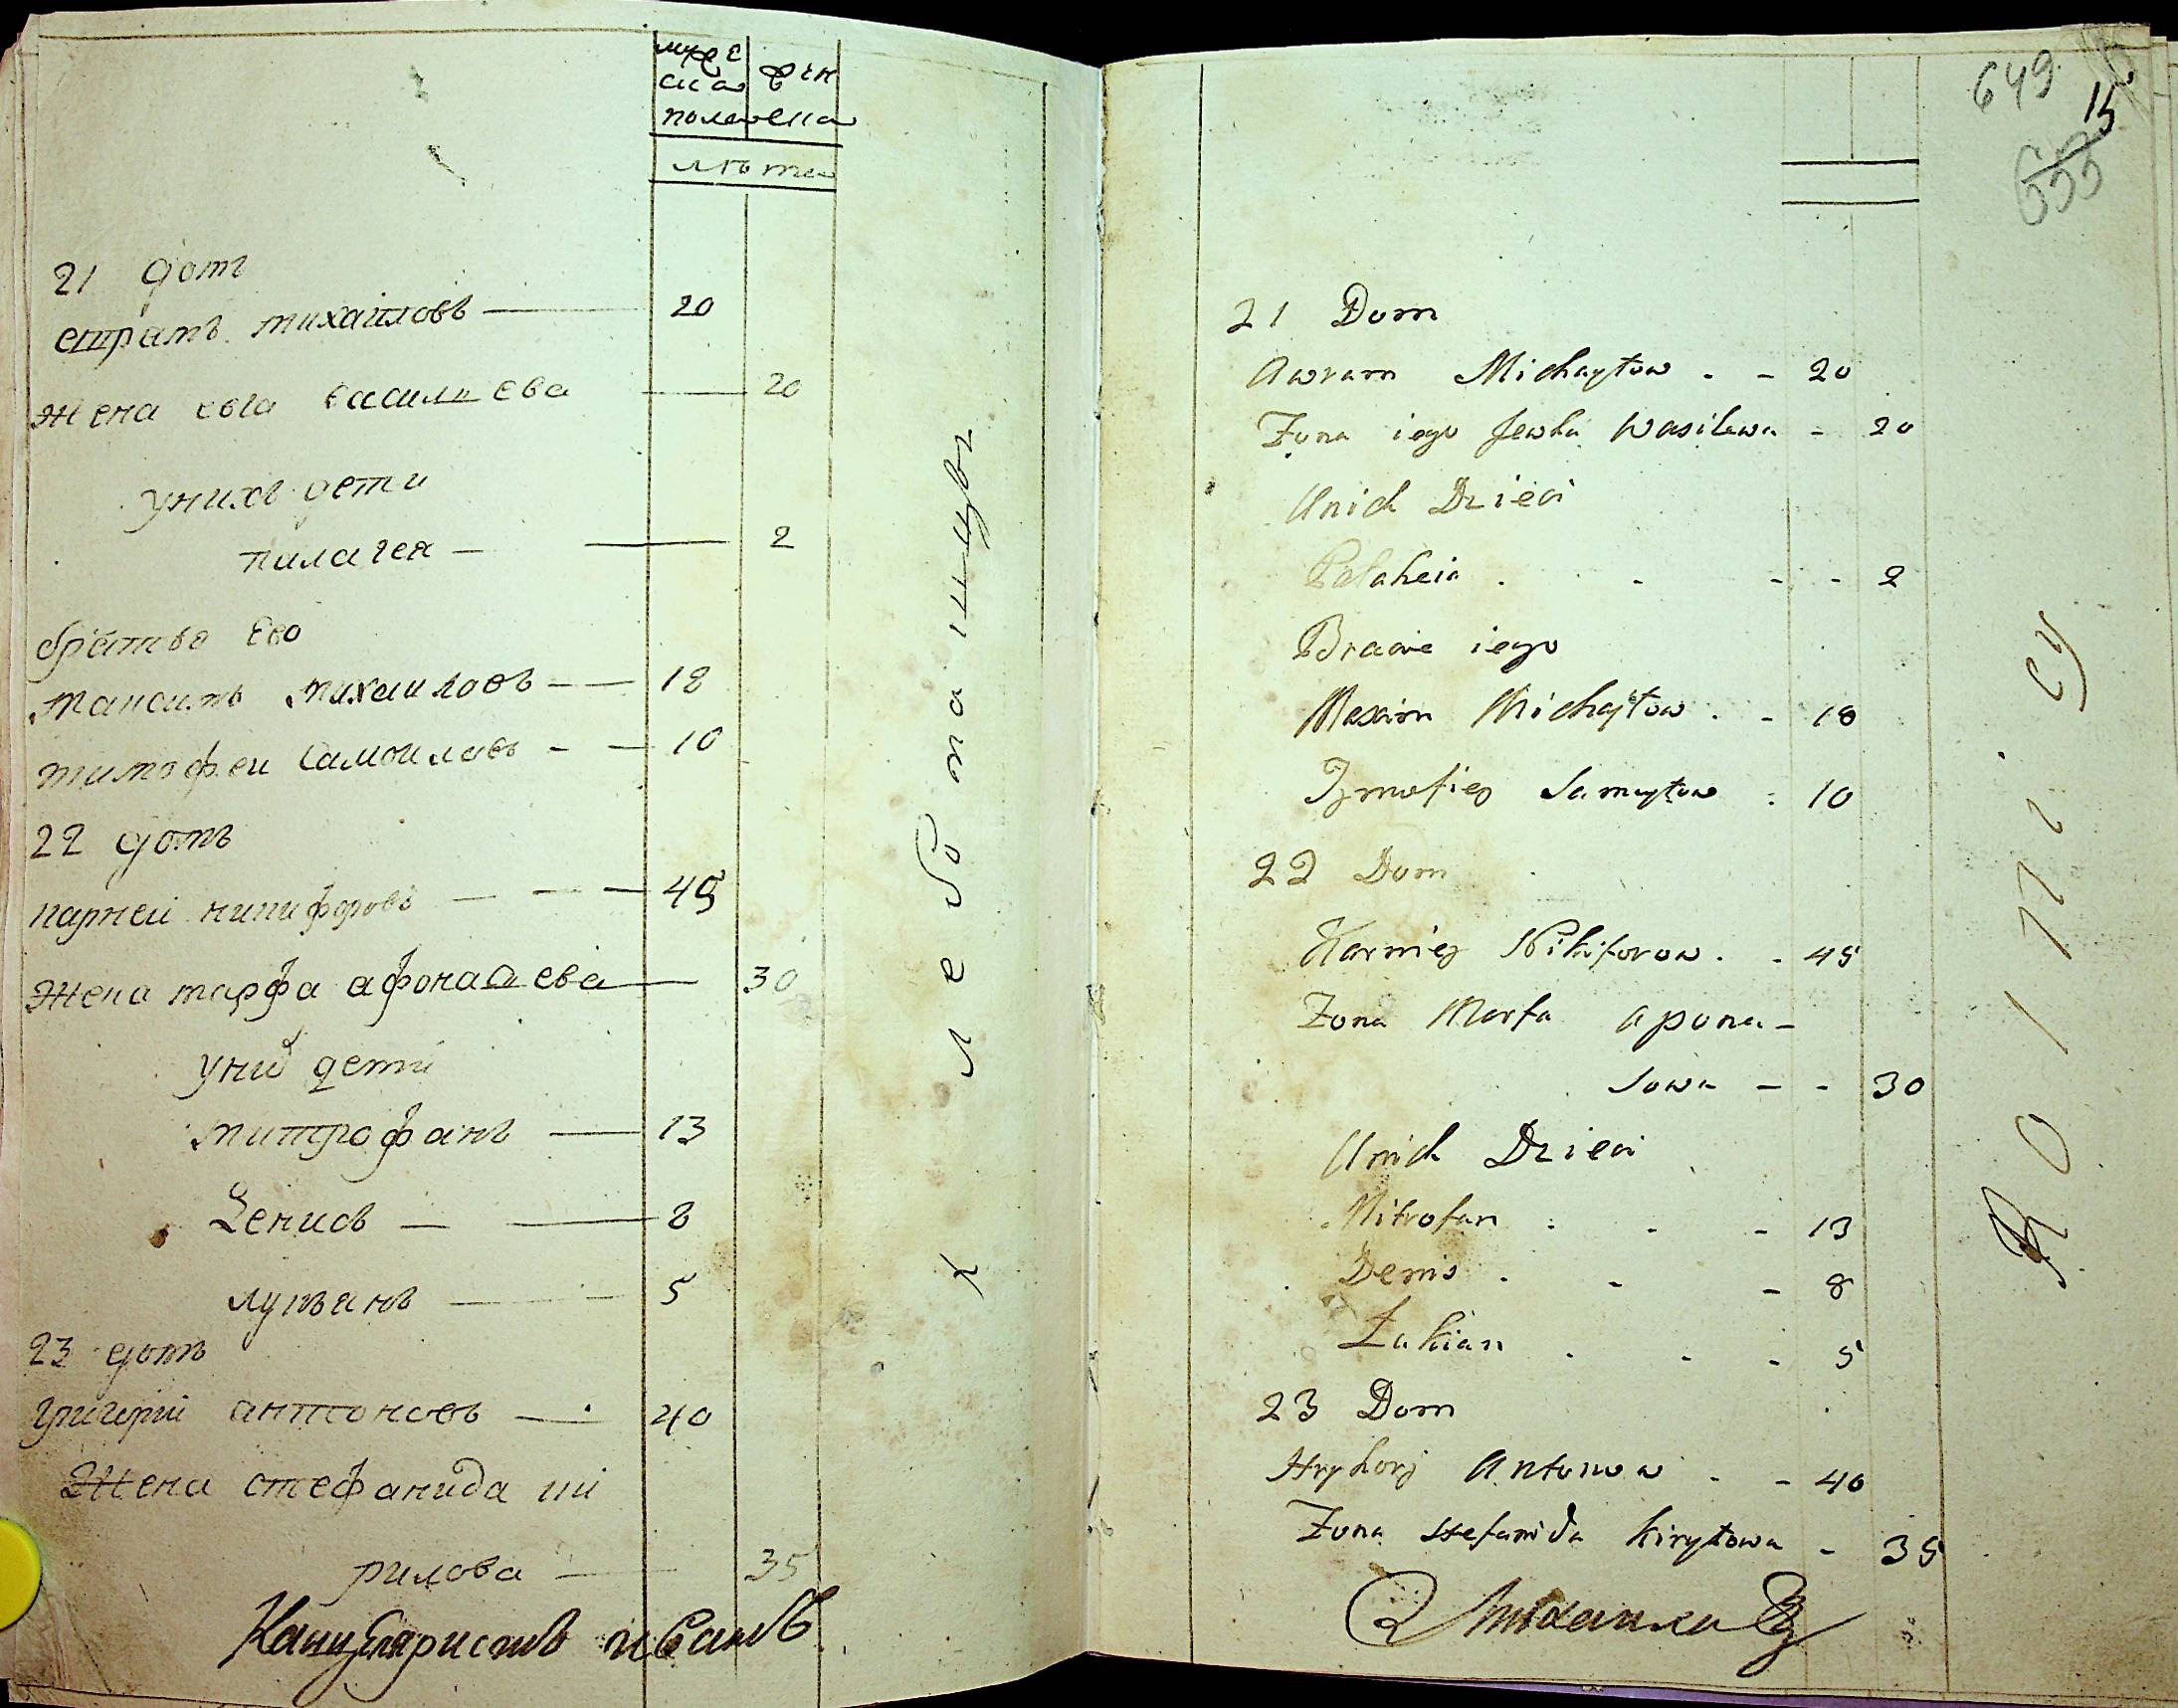 муже ска
жен
пола ена
лѣта
21 домъ
михаиловъ — 20
Жена ева василева — 20
уних дети
пилагея — 2
братья ево
максимъ михаиловъ — 18
тимофеи самоиловъ — 10
22 домъ
карнеи никифоровъ — 45
Жена марфа афонасева — 30
уних дети
митрофанъ — 13
Денисъ — 8
лукъянъ — 5
23 домъ
григорий антоновъ — 40
Жена стефанида ки
рилова — 35
649
15
21 Dom
Awram Michayłow - 20
Żona iego Jewka Wasilewa - 20
Unich Dzieci
Pałaheia - 2
Bracie iego
Maxim Michayłow - 18
Tymofiey Samuyłow - 10
22 Dom
Karniey Nikiforow - 45
Żona Marfa apona-
sowa - 30
Unich Dzieci
Mitrofan - 13
Denis - 8
Łukian - 5
23 Dom
Hryhory Antonow - 40
Żona Stefanida Kiryłowa - 35